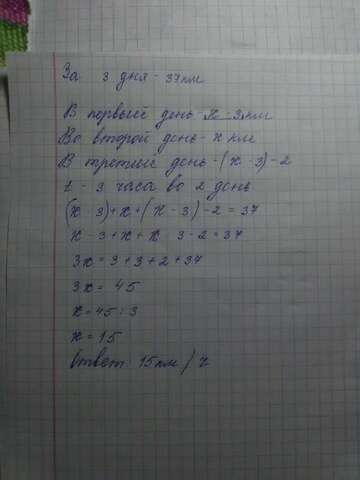 За 3 дня - 37км
В первый день - х - 3км
Во второй день - х км
В третий день - (х - 3) - 2
t - 3 часа во 2 день
(х - 3) + х + (х - 3) - 2 = 37
х - 3 + х + х - 3 - 2 = 37
3х = 3 + 3 + 2 + 37
3х = 45
х = 45 : 3
х = 15
Ответ: 15км / ч